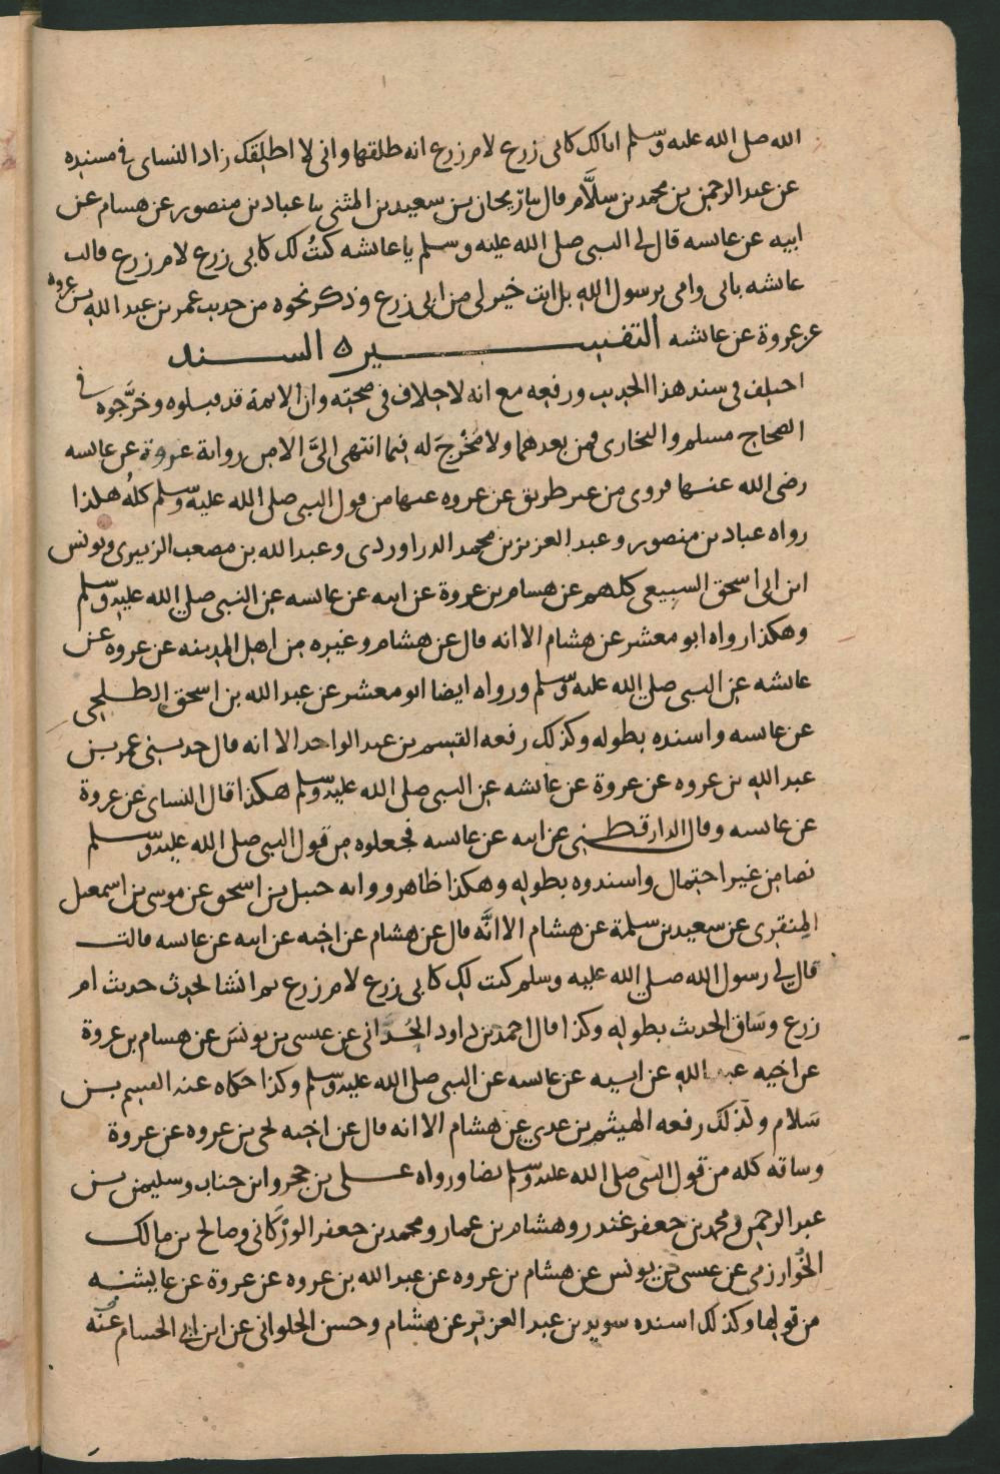 الله صلى الله عليه وسلم انا لك كابى زرع لام زرع انه طلقها وانى لا اطلقك زاد النساى فى مسنده
عن عبد الرحمن بن محمد بن سلَّام قال نا ريحان بن سعيد بن المثنى نا عباد بن منصور عن هسام عن
ابيه عن عاىسه قال لى النبى صلى الله عليه وسلم يا عائشه كنتُ لك كابى زرع لام زرع قالت
عائشه بابى وامى يرسول الله بل انت خير لى من ابى زرع وذكر نحوه من حديث عمر بن عبد الله بن عروه
عن عروة عن عائشه التفسيره السند
اختلف فى سند هذا الحديث ورفعه مع انه لا اختلاف فى صحته وان الائمة قد قبلوه وخرَّجوه فى
الصحاح مسلم والبخارى فمن بعدهما ولا مَخْرجَ له فيما انتهى الىَّ الا من رواية عروة عن عائسه
رضى الله عنها فروى من غير طريق عن عروه عنها من قول النبى صلى الله عليه وسلم كلهُ هكذا
رواه عباد بن منصور وعبد العزيز بن محمد الدراوردى وعبد الله بن مصعب الزبيرى ويونس
ابن ابى اسحق السبيعى كلهم عن هسام بن عروة عن ابيه عن عائسه عن النبى صلى الله عليه وسلم
وهكذا رواه ابو معشر عن هشام الا انه قال عن هشام وغيره من اهل المدينه عن عروه عن
عائشه عن النبى صلى الله عليه وسلم ورواه ايضا ابو معشر عن عبد الله بن اسحق الطلحى
عن عائسه واسنده بطوله وكذلك رفعه القسم بن عبد الواحد الا انه قال حدثنى عمر بن
عبد الله بن عروه عن عروة عن عائشه عن النبى صلى الله عليه وسلم هكذا قال النساى عن عروة
عن عائسه وقال الدارقطنى عن ابيه عن عائسه فجعلوه من قول النبى صلى الله عليه وسلم
نصا من غير احتمال واسندوه بطوله وهكذا ظاهر رواية حنبل بن اسحق عن موسى بن اسمعيل
المِنقرى عن سعيد بن سلمة عن هشام الا انَّه قال عن هشام عن اخيه عن ابيه عن عائسه قالت
قال لى رسول الله صلى الله عليه وسلم كنت لك كابى زرع لام زرع ثم انشا يحدث حديث ام
زرع وسَاق الحديث بطوله وكذا قال احمد بن داود الحُدَّانى عن عيسى بن يونسَ عن هسام بن عروة
عن اخيه عبد الله عن ابيه عن عائسه عن النبى صلى الله عليه وسلم وكذا حكاه عنه القسم بن
سَلام وكذلك رفعه الهيثم بن عدى عن هشام الا انه قال عن اخيه يحى بن عروه عن عروة
وساقه كله من قول النبى صلى الله عليه وسلم نصا ورواه على بن حجر وابن جناب وسليمن بن
عبد الرحمن ومحمد بن جعفر غندر وهشام بن عمار ومحمد بن جعفر الورْكانى وصالح بن مالك
الخوارزمى عن عيسى بن يونس عن هشام بن عروه عن عبد الله بن عروه عن عروة عن عائشه
من قولها وكذلك اسنده سويد بن عبد العزيز عن هشام وحسن الحلوانى عن ابن ابى الحسام عنه